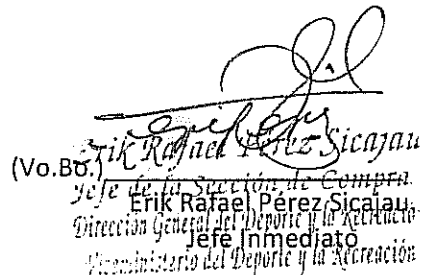 Erik Rafael Pérez Sicajau
(Vo.Bo.)
Jefe de la Sección de Compra
Erik Rafael Pérez Sicajau
Dirección General del Deporte y la Recreació
Jefe Inmediato
Viceministerio del Deporte y la Recreación